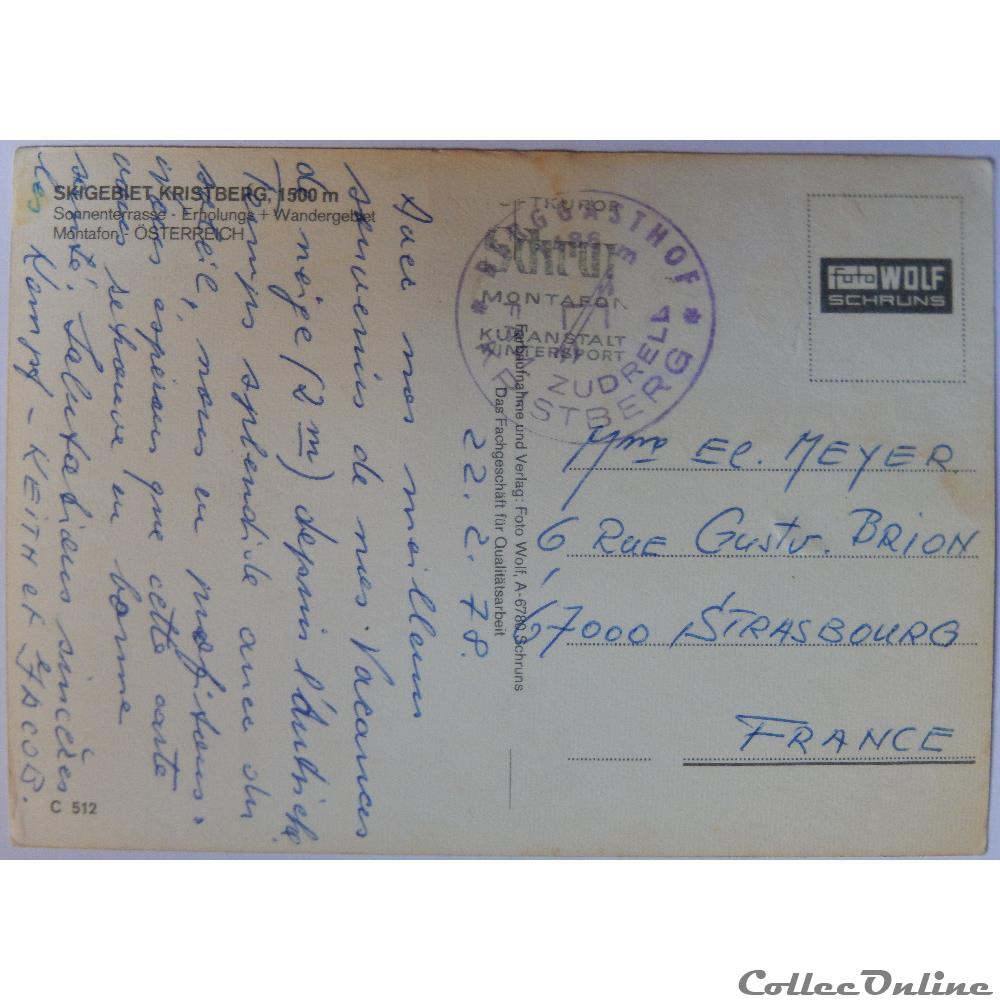 SKIGEBIET KRISTBERG, 1500 m
Sonnenterrasse - Erholungs + Wandergebiet
Montafon - ÖSTERREICH
22. 2. 78.
Avec nos meilleurs
souvenirs de nos Vacances
de neige (2 m) depuis l'Autriche
Temps splendide avec du
soleil, nous en profitons.
Nous espérons que cette carte
vous retrouve en bonne
santé, Salutations sincères
les Kampf - KEITH et JACOB.
C 512
Farbaufnahme und Verlag: Foto Wolf, A-6780 Schruns
Das Fachgeschäft für Qualitätsarbeit
LUFTKURORT
Schruns
MONTAFON
KURANSTALT
WINTERSPORT
* BERGGASTHOF *
ZUDRELL
KRISTBERG
foto WOLF
SCHRUNS
Mme EL. MEYER
6, RUE GUSTV. BRION
67000 STRASBOURG
FRANCE
CollecOnline